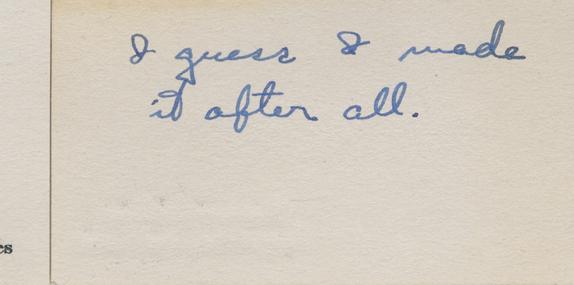 I guess I made
it after all.